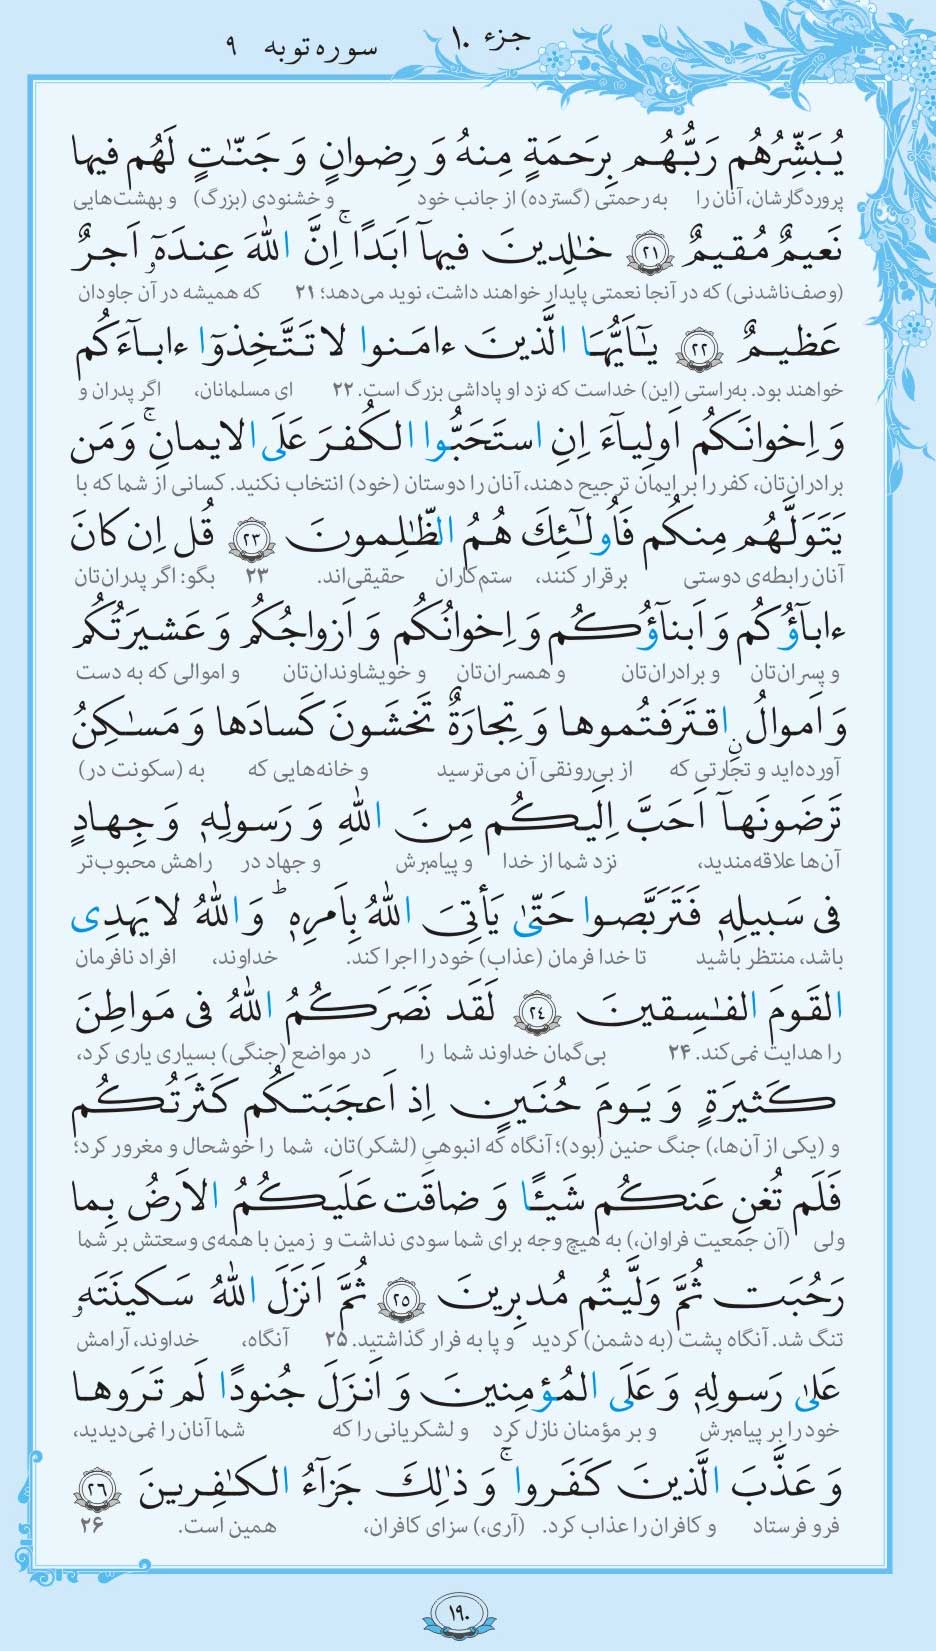 جزء ۱۰
سوره توبه ۹
يُبَشِّرُهُم رَبُّهُم بِرَحمَةٍ مِنهُ وَ رِضوانٍ وَ جَنّٰتٍ لَهُم فيها
پروردگارشان، آنان را به رحمتی (گسترده) از جانب خود و خشنودی (بزرگ) و بهشت‌هایی
نَعيمٌ مُقيمٌ ۲۱ خٰلِدينَ فيهآ اَبَدًا ۚ اِنَّ اللّٰهَ عِندَهٓ‌و اَجرٌ
(وصف‌ناشدنی) که در آنجا نعمتی پایدار خواهند داشت، نوید می‌دهد؛ ۲۱ که همیشه در آن جاودان
عَظيمٌ ۲۲ يٰٓاَيُّهَا الَّذينَ ءامَنوا لا تَتَّخِذوٓا ءابآءَكُم
خواهند بود. به‌راستی (این) خداست که نزد او پاداشی بزرگ است. ۲۲ ای مسلمانان، اگر پدران و
وَ اِخوانَكُم اَولِيآءَ اِنِ استَحَبُّوا الكُفرَ عَلَى الايمانِ ۚ وَ مَن
برادران‌تان، کفر را بر ایمان ترجیح دهند، آنان را دوستان (خود) انتخاب نکنید. کسانی از شما که با
يَتَوَلَّهُم مِنكُم فَاُولٰٓئِكَ هُمُ الظّٰلِمونَ ۲۳ قُل اِن كانَ
آنان رابطه‌ی دوستی برقرار کنند، ستم‌کاران حقیقی‌اند. ۲۳ بگو: اگر پدران‌تان
ءابآؤُكُم وَ اَبنآؤُكُم وَ اِخوانُكُم وَ اَزواجُكُم وَ عَشيرَتُكُم
و پسران‌تان و برادران‌تان و همسران‌تان و خویشاوندان‌تان و اموالی که به دست
وَ اَموالُ نِ اقتَرَفتُموها وَ تِجارَةٌ تَخشَونَ كَسادَها وَ مَسٰكِنُ
آورده‌اید و تجارتی که از بی‌رونقی آن می‌ترسید و خانه‌هایی که به (سکونت در)
تَرضَونَهآ اَحَبَّ اِلَيكُم مِنَ اللّٰهِ وَ رَسولِهٖ وَ جِهادٍ
آن‌ها علاقه‌مندید، نزد شما از خدا و پیامبرش و جهاد در راهش محبوب‌تر
فى سَبيلِهٖ فَتَرَبَّصوا حَتّىٰ يَأتِىَ اللّٰهُ بِاَمرِهٖ ؕ وَ اللّٰهُ لا يَهدِى
باشد، منتظر باشید تا خدا فرمان (عذاب) خود را اجرا کند. خداوند، افراد نافرمان
القَومَ الفٰسِقينَ ۲۴ لَقَد نَصَرَكُمُ اللّٰهُ فى مَواطِنَ
را هدایت نمی‌کند. ۲۴ بی‌گمان خداوند شما را در مواضع (جنگی) بسیاری یاری کرد،
كَثيرَةٍ وَ يَومَ حُنَينٍ اِذ اَعجَبَتكُم كَثرَتُكُم
و (یکی از آن‌ها،) جنگ حنین (بود)؛ آنگاه که انبوهیِ (لشکر)تان، شما را خوشحال و مغرور کرد؛
فَلَم تُغنِ عَنكُم شَيـًٔا وَ ضاقَت عَلَيكُمُ الاَرضُ بِما
ولی (آن جمعیت فراوان،) به هیچ وجه برای شما سودی نداشت و زمین با همه‌ی وسعتش بر شما
رَحُبَت ثُمَّ وَلَّيتُم مُدبِرينَ ۲۵ ثُمَّ اَنزَلَ اللّٰهُ سَكينَتَهو
تنگ شد. آنگاه پشت (به دشمن) کردید و پا به فرار گذاشتید. ۲۵ آنگاه، خداوند، آرامش
عَلىٰ رَسولِهٖ وَ عَلَى المُؤمِنينَ وَ اَنزَلَ جُنودًا لَم تَرَوها
خود را بر پیامبرش و بر مؤمنان نازل کرد و لشکریانی را که شما آنان را نمی‌دیدید،
وَ عَذَّبَ الَّذينَ كَفَروا ۚ وَ ذٰلِكَ جَزآءُ الكٰفِرينَ ۲۶
فرو فرستاد و کافران را عذاب کرد. (آری،) سزای کافران، همین است. ۲۶
۱۹۰